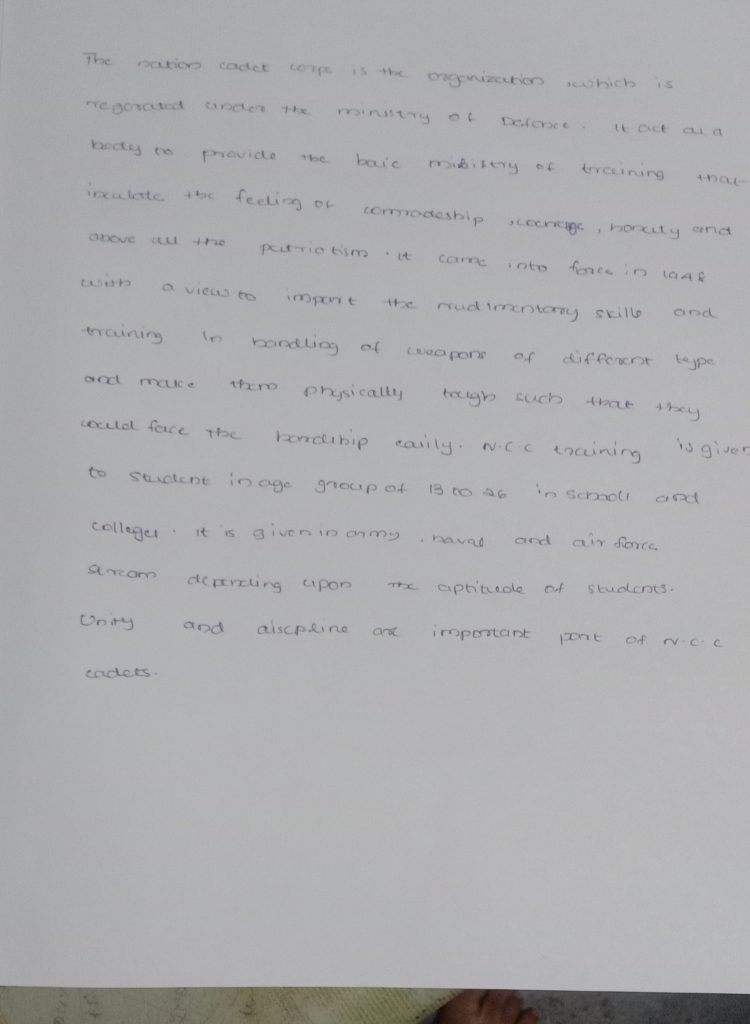 The nation cadet corps is the organization, which is
regorated under the ministry of Defence. It act as a
body to provide the baic of training that
inculate the feeling of comradeship, courage, and
above all the patriotism. it came into force in 1948
with a view to impart the rudimentary skills and
training in handling of weapons of different type
and make them physically tough such that they
could face the hardship easily. N.C.C training is given
to student in age group of 13 to 26 in schools and
colleges. it is given in army, naval and air force
stream depending upon the aptitude of students.
Unity and discpline are important part of N.C.C
cadets.